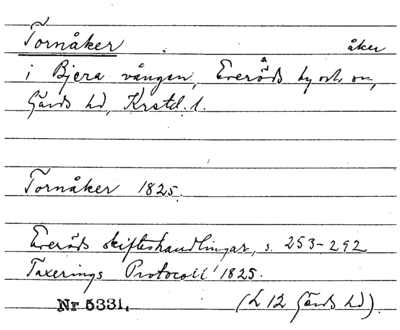 Tornåker åker
i Bjera vången, Everöds by och sn,
Gärds hd, Krstd. l.
Tornåker 1825.
Everöds skifteshandlingar, s. 253-292
Taxerings Protocoll 1825.
Nr 5331. (L 12 Gärds hd).